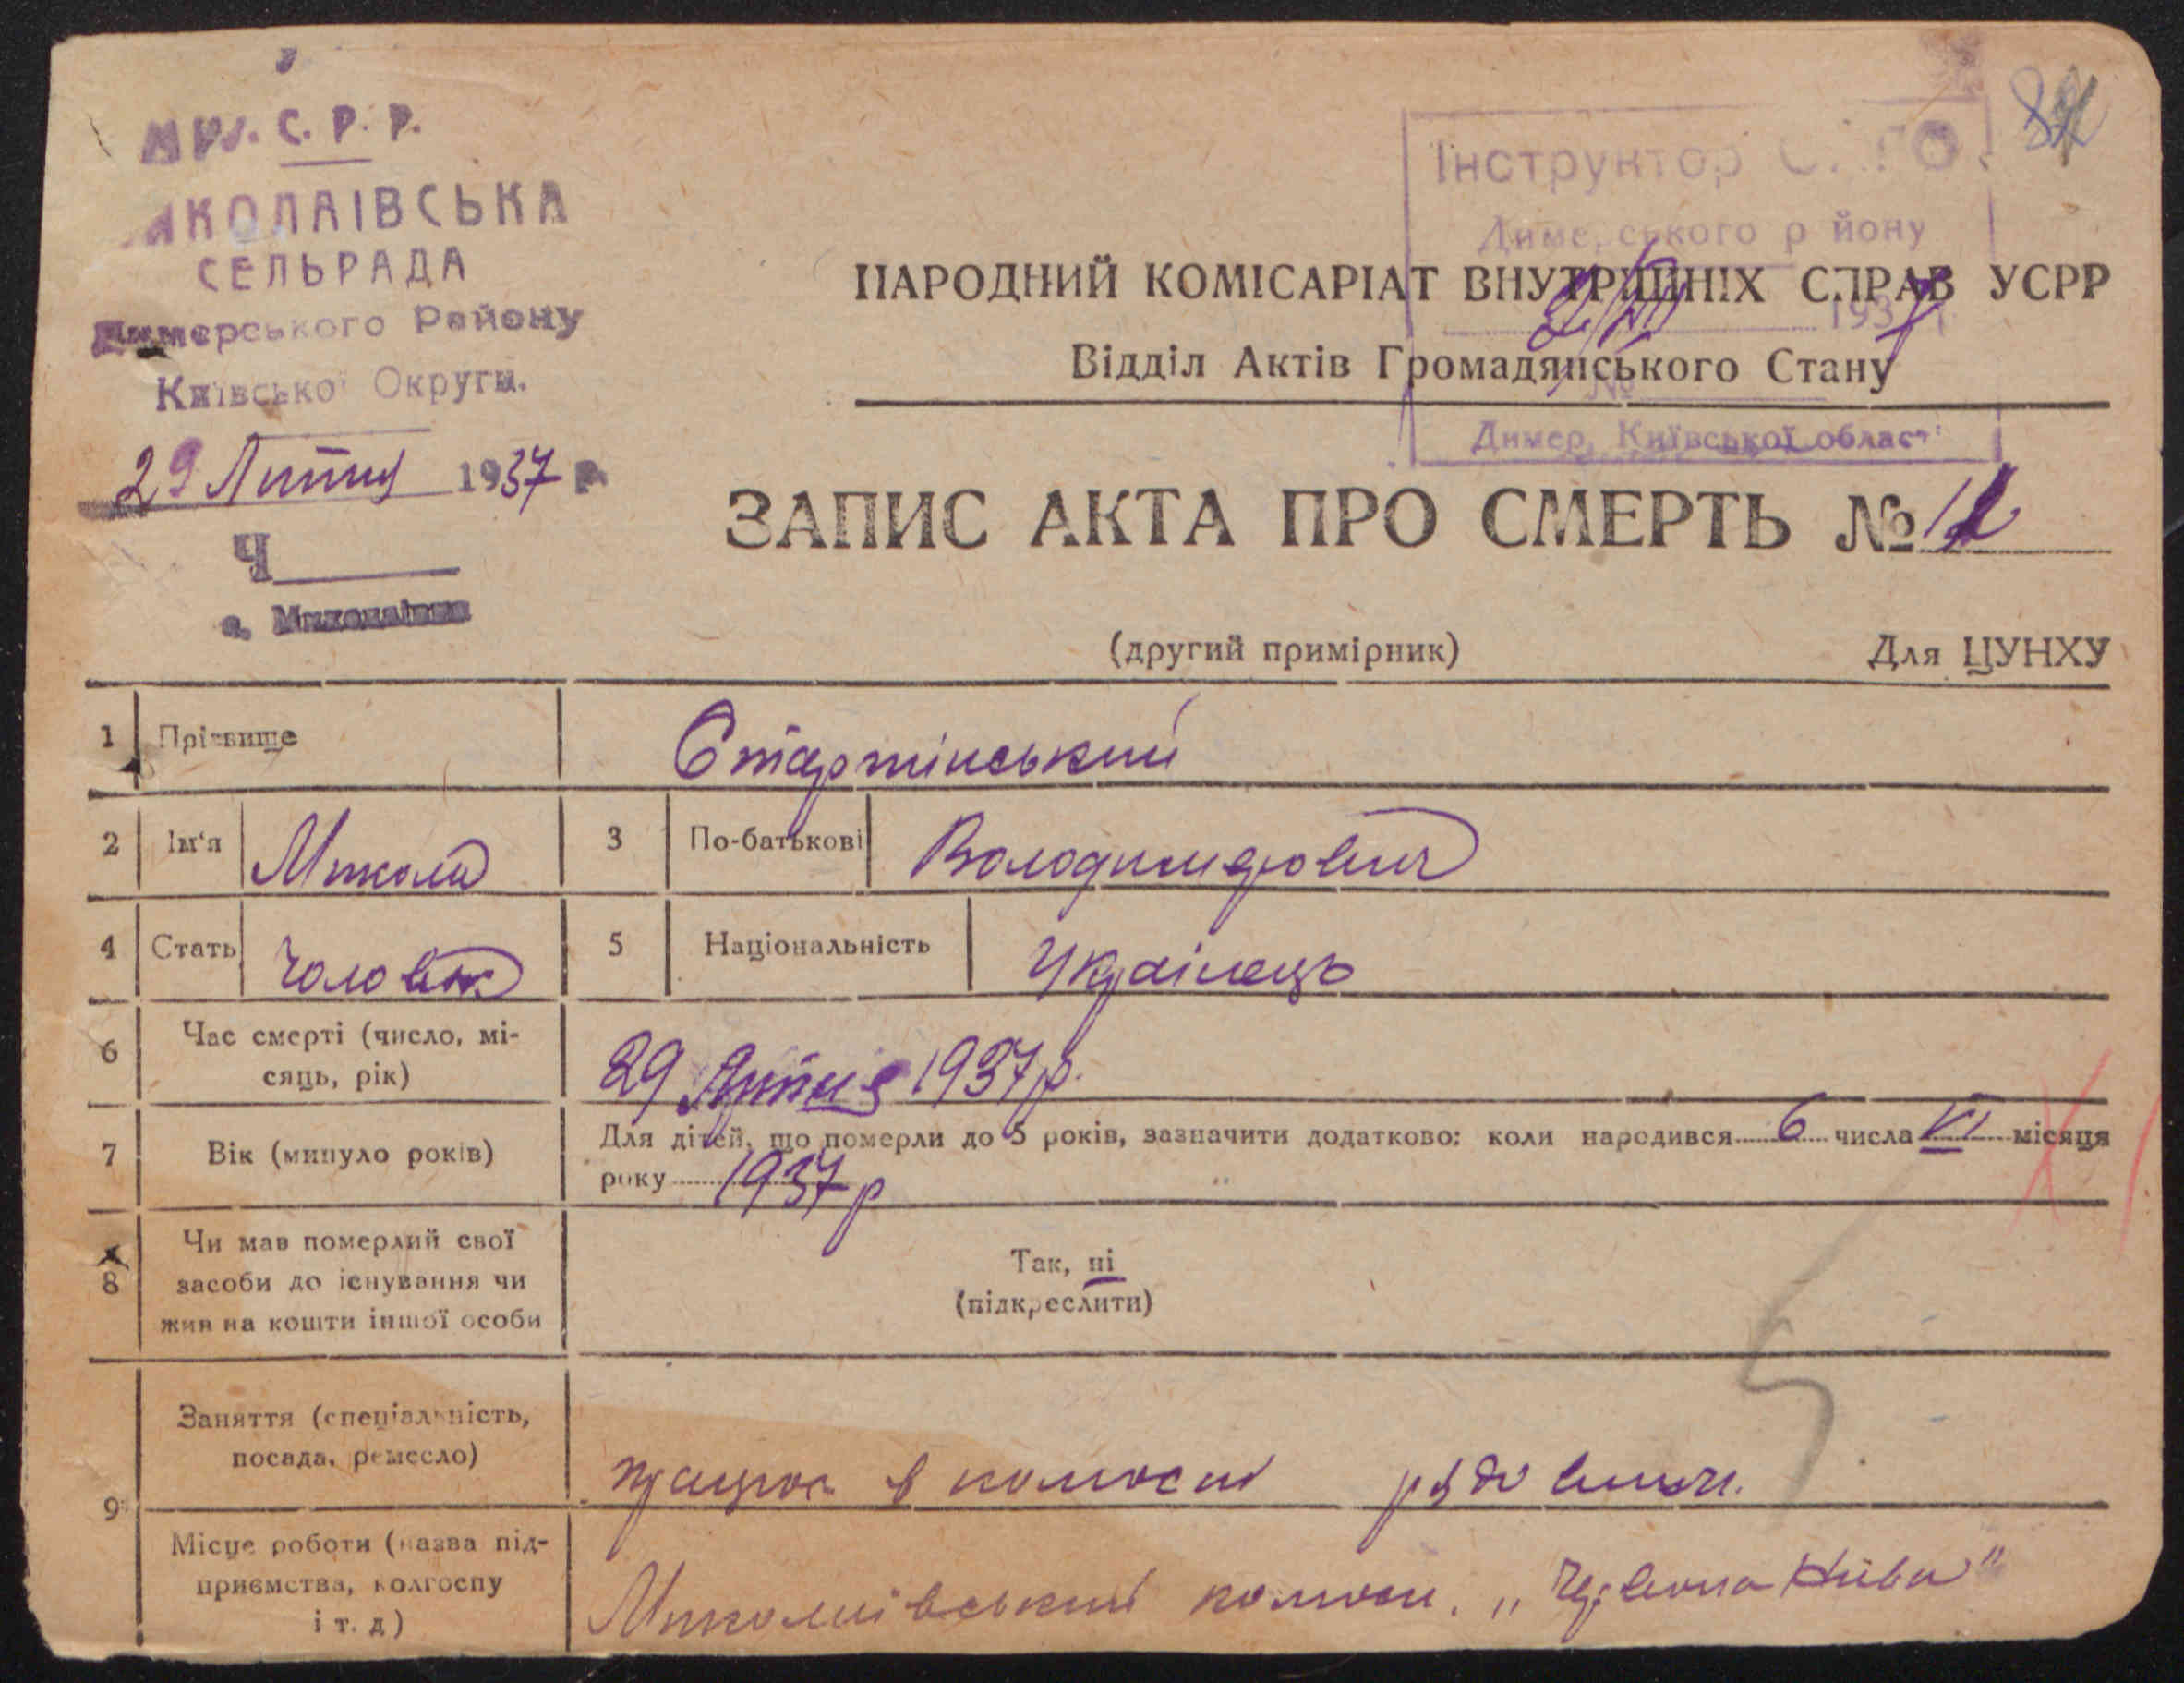 С. Р. Р.
МИКОЛАІВСЬКА
СЕЛЬРАДА
Димерського Району
Київської Округи.
29 Липня 1937 р
Ч
с. Миколаівка
82
Інструктор
Димерського району
193
Димер, Київської області
НАРОДНИЙ КОМІСАРІАТ ВНУТРІШНІХ СПРАВ УСРР
Відділ Актів Громадянського Стану
ЗАПИС АКТА ПРО СМЕРТЬ № 12
(другий примірник) Для ЦУНХУ
1 Прізвище Стартінський
2 Ім'я Микола 3 По-батькові Володимирович
4 Стать Чоловік 5 Національність Украінець
6 Час смерті (число, мі-
сяць, рік) 29 Липня 1937 р.
7 Вік (минуло років) Для дітей, що померли до 5 років, зазначити додатково: коли народився 6 числа VI місяця
року 1937 р
8 Чи мав померлий свої
засоби до існування чи
жив на кошти іншої особи
Так, ні
(підкреслити)
9 Заняття (спеціальність,
посада, ремесло) працює в колгоспі рядовим.
Місце роботи (назва під-
приємства, колгоспу
і т. д) Миколаівський колгосп. „Червона Нива"